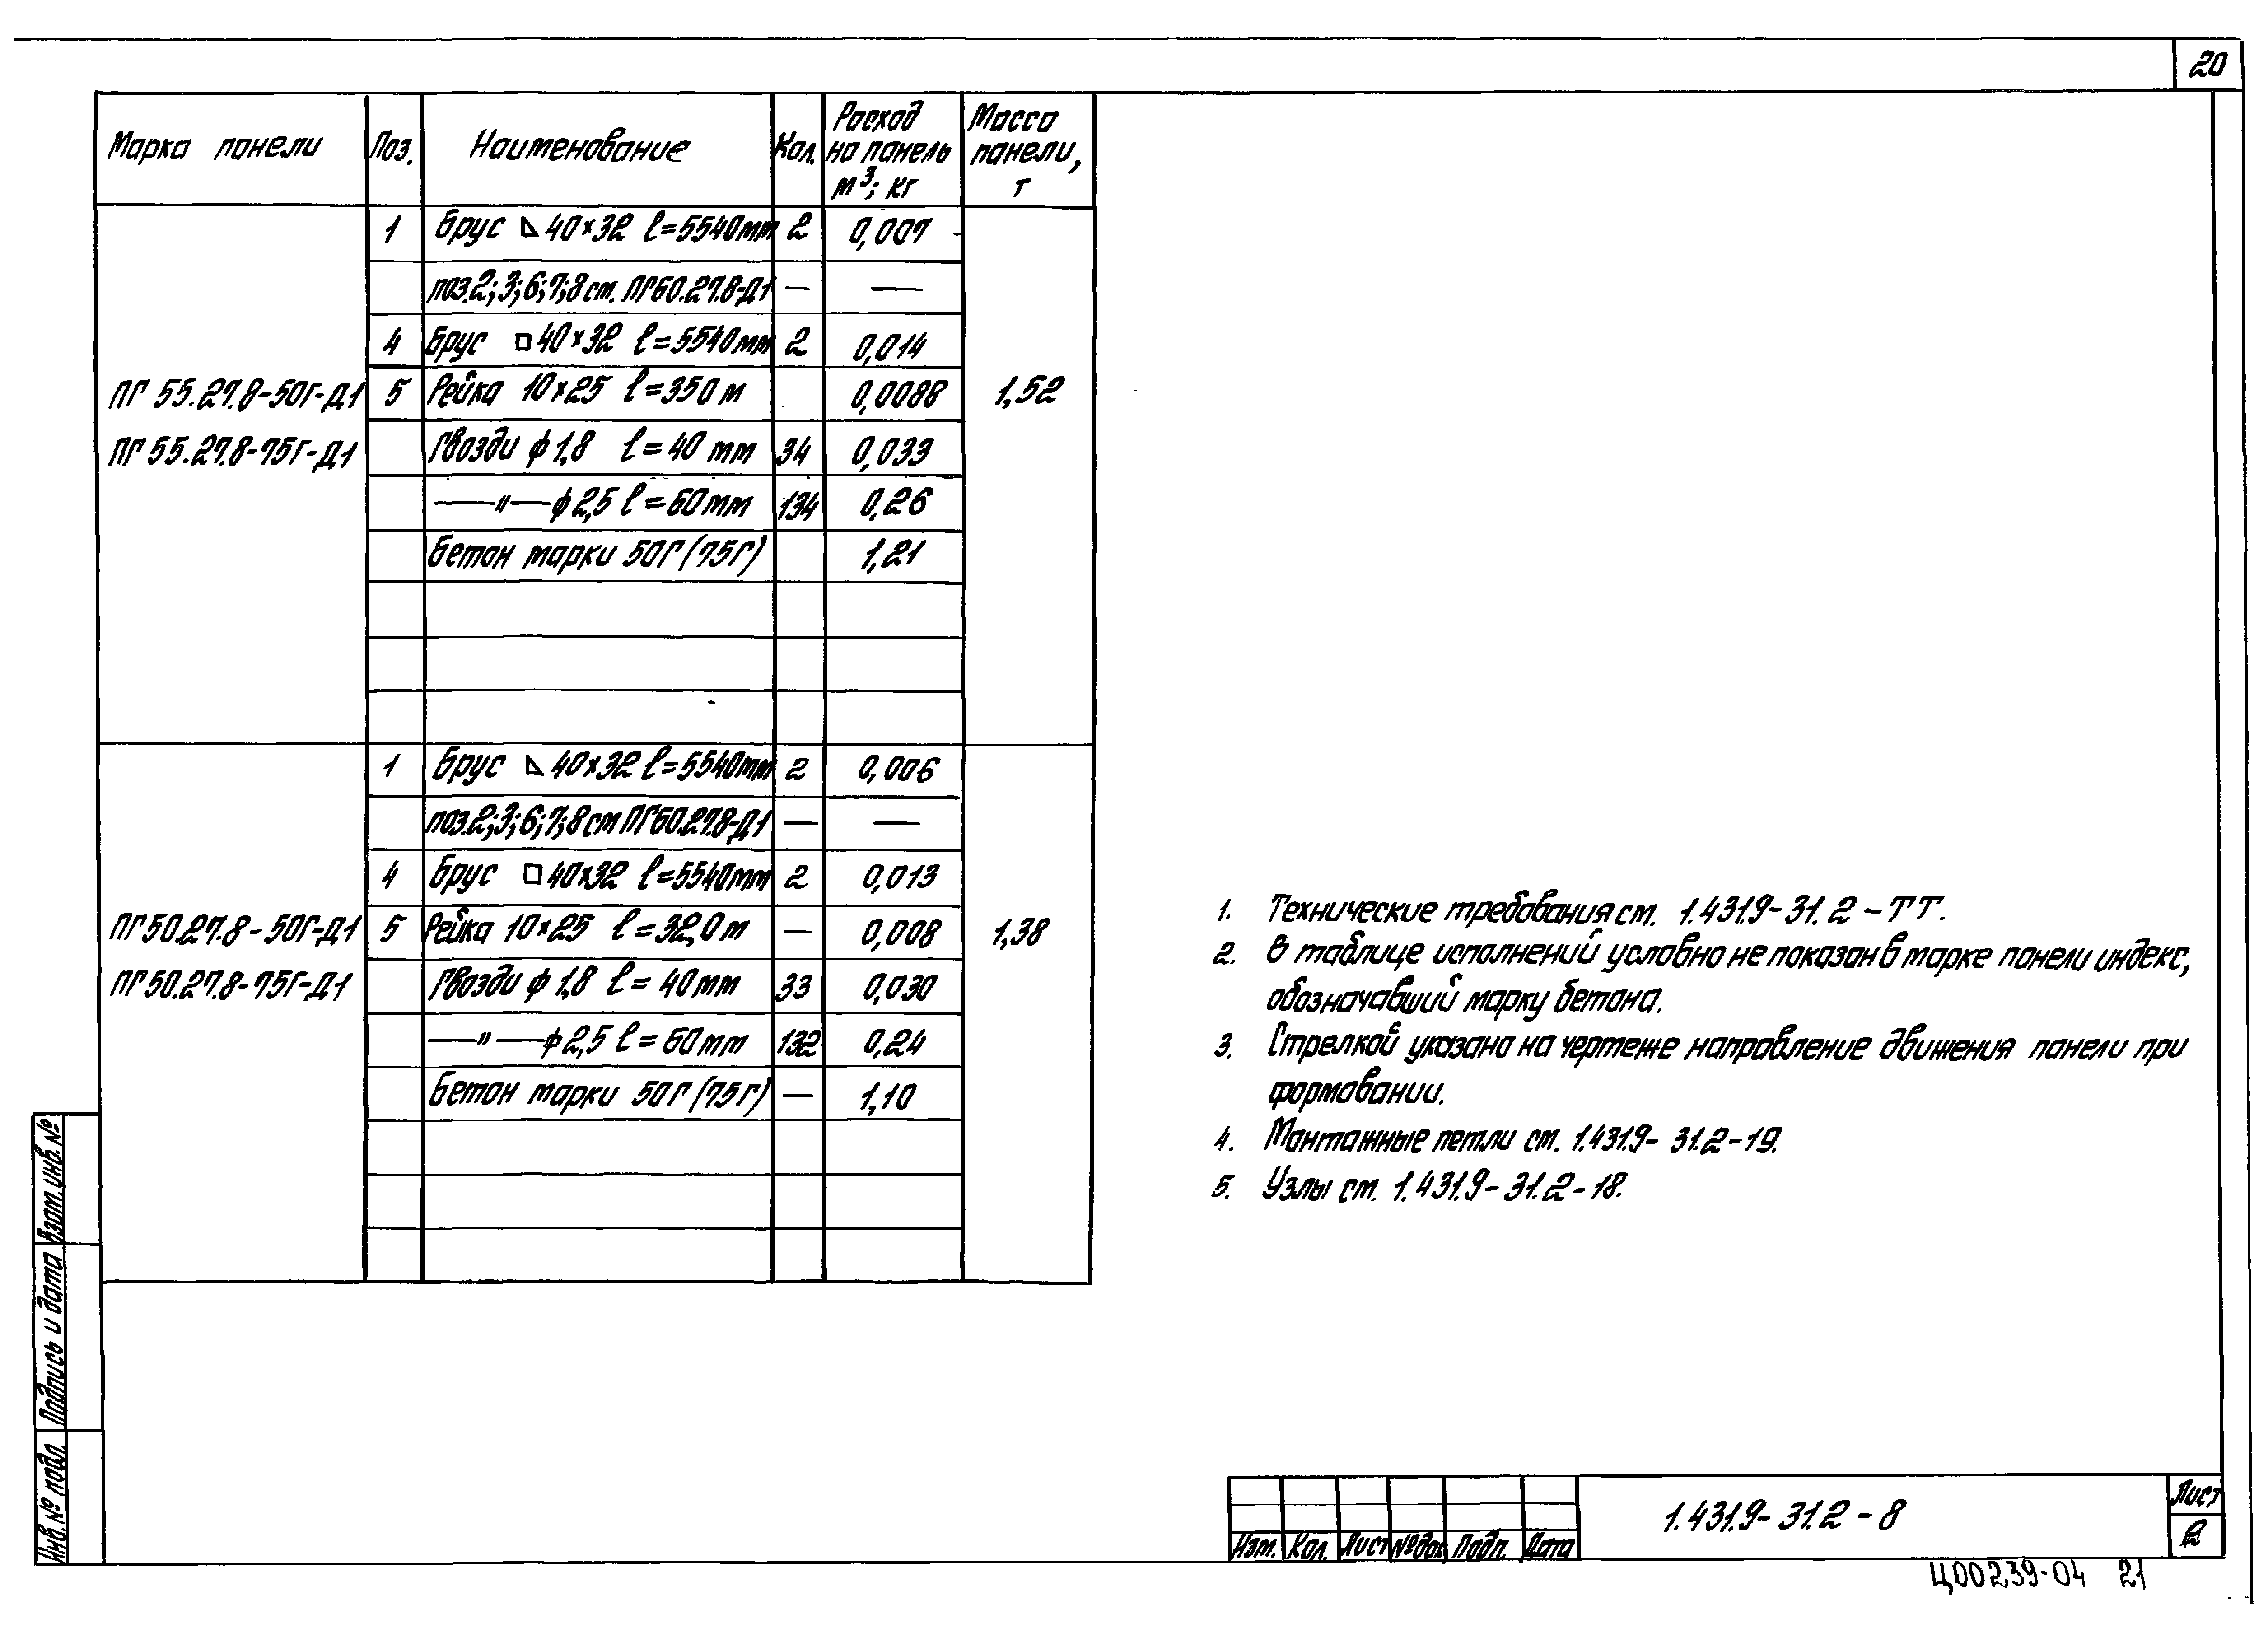 20
Марка панели Поз. Наименование Кол. Расход на панель м³; кг Масса панели, т
1 Брус ◺ 40×32 ℓ=5540мм 2 0,007
поз.2;3;6;7;8 см. ПГ60.27.8-Д1 — —
4 Брус □ 40×32 ℓ=5540мм 2 0,014
ПГ 55.27.8-50Г-Д1 5 Рейка 10×25 ℓ=350м 0,0088 1,52
ПГ 55.27.8-75Г-Д1 Гвозди ϕ1,8 ℓ=40 мм 34 0,033
—〃—ϕ2,5 ℓ=60мм 134 0,26
Бетон марки 50Г(75Г) 1,21
1 Брус ◺ 40×32 ℓ=5540мм 2 0,006
поз.2;3;6;7;8 см ПГ60.27.8-Д1 — —
4 Брус □ 40×32 ℓ=5540мм 2 0,013
ПГ50.27.8-50Г-Д1 5 Рейка 10×25 ℓ=32,0м — 0,008 1,38
ПГ50.27.8-75Г-Д1 Гвозди ϕ1,8 ℓ=40мм 33 0,030
—〃—ϕ2,5 ℓ=60мм 132 0,24
Бетон марки 50Г(75Г) — 1,10
1. Технические требования см. 1.431.9-31.2-ТТ.
2. В таблице исполнений условно не показан в марке панели индекс,
обозначавший марку бетона.
3. Стрелкой указано на чертеже направление движения панели при
формовании.
4. Монтажные петли см. 1.431.9-31.2-19.
5. Узлы см. 1.431.9-31.2-18.
Взам. инв. №
Подпись и дата
Инв. № подл.
Изм. Кол. Лист №док Подп. Дата
1.431.9-31.2-8
Лист
2
Ц00239-04 21